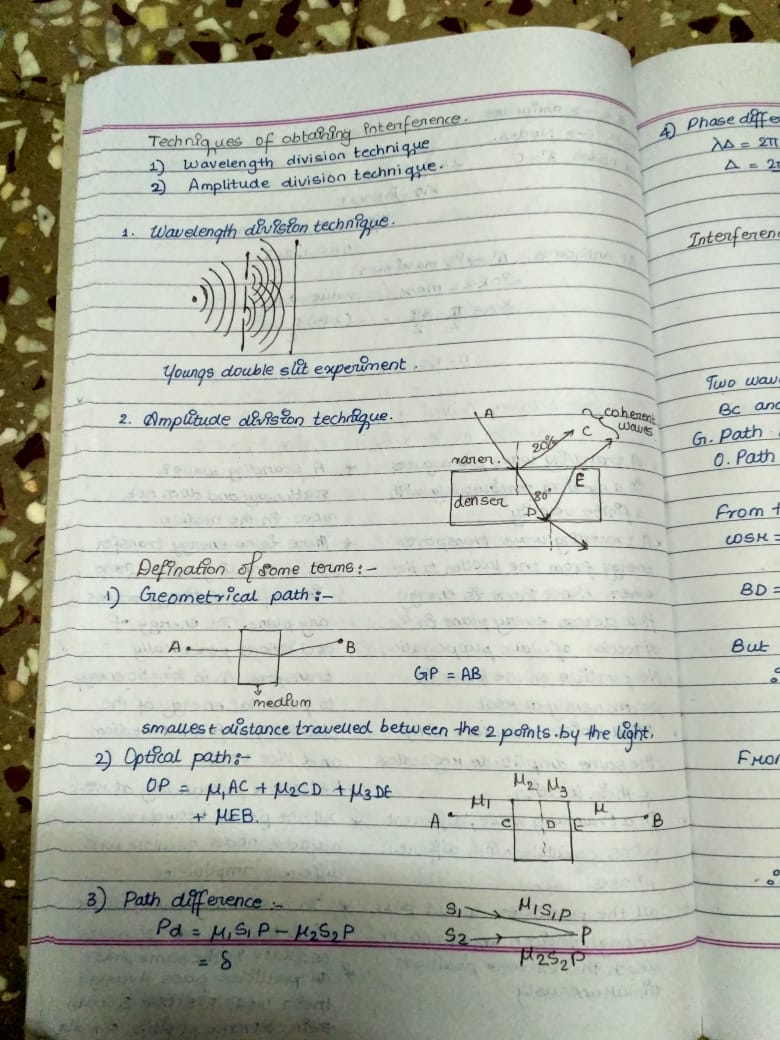 Techniques of obtaining interference.
1) Wavelength division technique
2) Amplitude division technique.
1. Wavelength division technique.
Youngs double slit experiment.
2. Amplitude division technique.
A
20%
C
coherent
waves
rarer.
E
denser
80%
D
Defination of some terms:-
1) Geometrical path:-
A
B
GP = AB
medium
smallest distance travelled between the 2 points by the light.
2) Optical path:-
OP = μ1AC + μ2CD + μ3DE
+ μEB.
μ2 μ3
μ1
μ
A
C
D
E
B
3) Path difference:-
Pd = μ1S1P - μ2S2P
= δ
S1
μ1S1P
S2
P
μ2S2P
4) Phase diffe
λΔ = 2π
Δ = 2π
Interferen
Two wav
BC and
G. Path
O. Path
From
cosr =
BD =
But
From